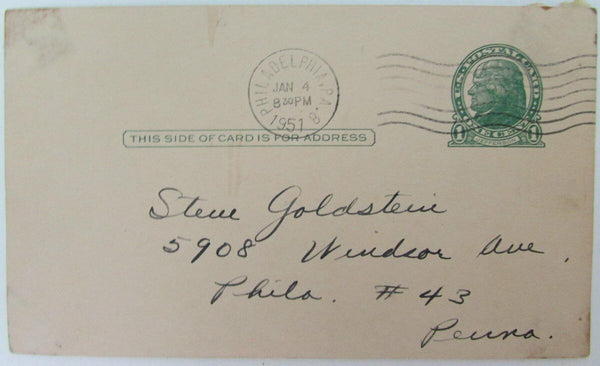 PHILADELPHIA, PA. 8
JAN 4
8 30 PM
1951
U.S. POSTAL CARD
ONE CENT
THIS SIDE OF CARD IS FOR ADDRESS
Steve Goldstein
5908 Windsor Ave,
Phila. #43
Penna.